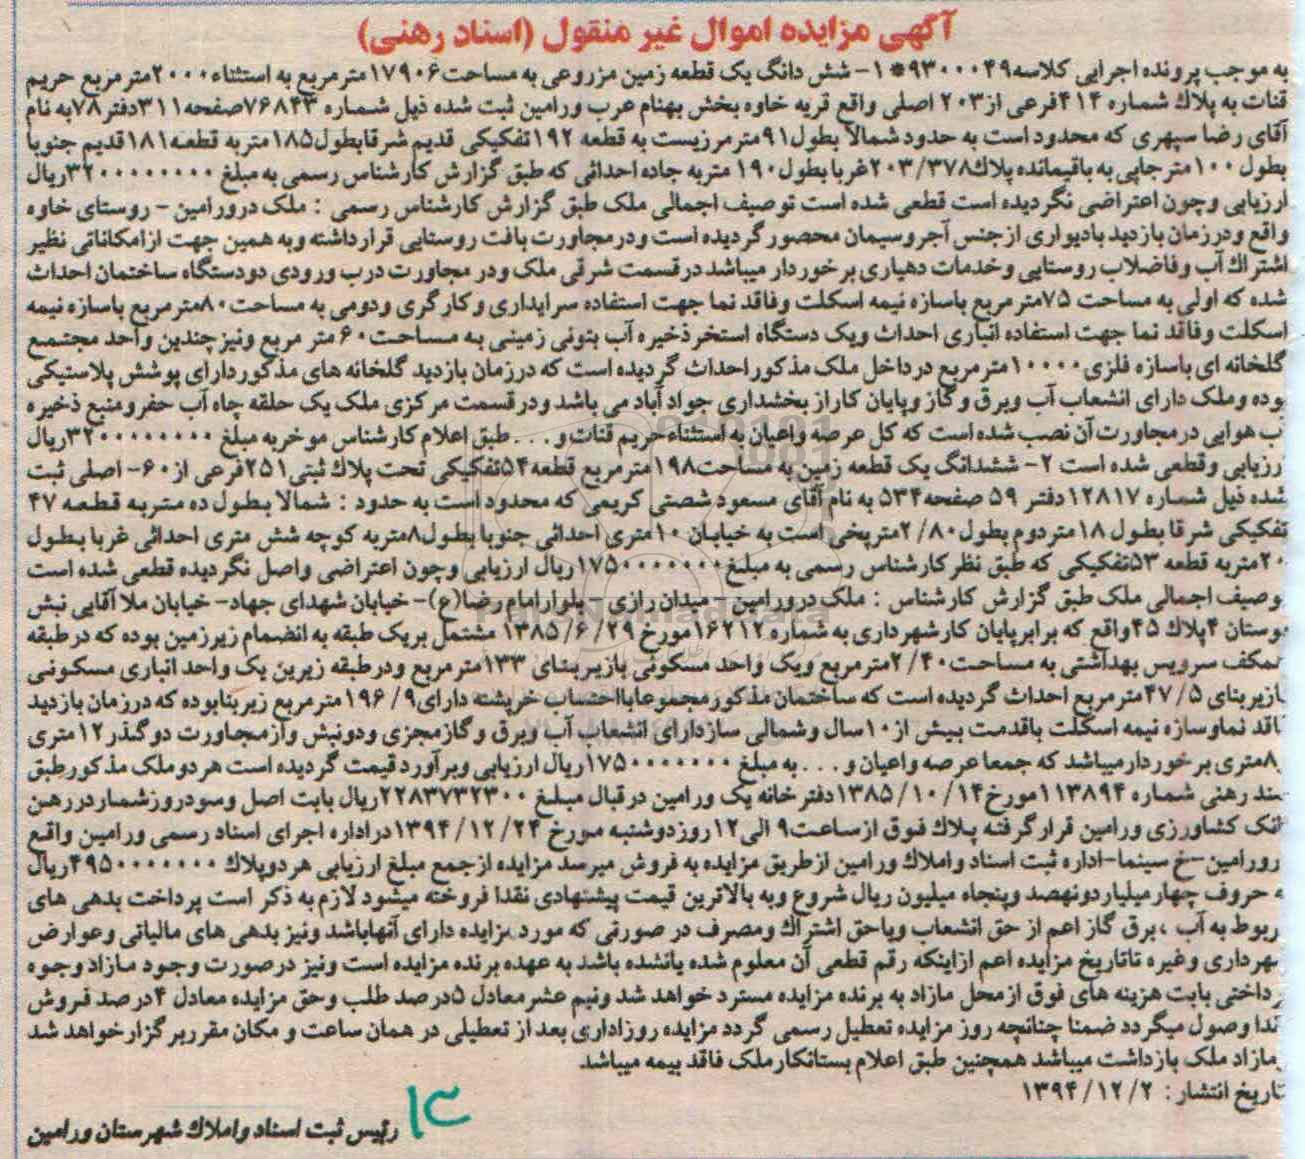 آگهی مزایده اموال غیر منقول (اسناد رهنی)
به موجب پرونده اجرایی کلاسه۹۳۰۰۰۴۹* ۱- شش دانگ یک قطعه زمین مزروعی به مساحت۱۷۹۰۶مترمربع به استثناء۲۰۰۰مترمربع حریم
قنات به پلاك شماره ۴۱۴فرعی از۲۰۳ اصلی واقع قریه خاوه بخش بهنام عرب ورامین ثبت شده ذیل شماره ۷۶۸۴۳صفحه۳۱۱دفتر۷۸به نام
آقای رضا سپهری که محدود است به حدود شمالا بطول۹۱مترمرزیست به قطعه ۱۹۲تفکیکی قدیم شرقابطول۱۸۵متربه قطعه۱۸۱قدیم جنوبا
بطول ۱۰۰مترجایی به باقیمانده پلاك۲۰۳/۳۷۸غربا بطول۱۹۰ متربه جاده احداثی که طبق گزارش کارشناس رسمی به مبلغ ۳۲۰۰۰۰۰۰۰۰۰ریال
ارزیابی وچون اعتراضی نگردیده است قطعی شده است توصیف اجمالی ملک طبق گزارش کارشناس رسمی : ملک درورامین - روستای خاوه
واقع ودرزمان بازدید بادیواری ازجنس آجروسیمان محصورگردیده است ودرمجاورت بافت روستایی قرارداشته وبه همین جهت ازامکاناتی نظیر
اشتراك آب وفاضلاب روستایی وخدمات دهیاری برخوردار میباشد درقسمت شرقی ملک ودر مجاورت درب ورودی دودستگاه ساختمان احداث
شده که اولی به مساحت ۷۵مترمربع باسازه نیمه اسکلت وفاقد نما جهت استفاده سرایداری وکارگری ودومی به مساحت۸۰مترمربع باسازه نیمه
اسکلت وفاقد نما جهت استفاده انباری احداث ویک دستگاه استخرذخیره آب بتونی زمینی به مساحت۶۰متر مربع ونیزچندین واحد مجتمع
گلخانه ای باسازه فلزی۱۰۰۰۰مترمربع درداخل ملک مذکوراحداث گردیده است که درزمان بازدید گلخانه های مذکوردارای پوشش پلاستیکی
بوده وملک دارای انشعاب آب وبرق وگاز وپایان کاراز بخشداری جواد آباد می باشد ودرقسمت مرکزی ملک یک حلقه چاه آب حفرومنبع ذخیره
ب هوایی درمجاورت آن نصب شده است که کل عرصه واعیان به استثناءحریم قنات و...طبق اعلام کارشناس موخربه مبلغ ۳۲۰۰۰۰۰۰۰۰۰ریال
رزیابی وقطعی شده است ۲- ششدانگ یک قطعه زمین به مساحت۱۹۸مترمربع قطعه۵۴تفکیکی تحت پلاك ثبتی۲۵۱فرعی از۶۰- اصلی ثبت
شده ذیل شماره ۱۲۸۱۷دفتر ۵۹ صفحه۵۳۴ به نام آقای مسعود شصتی کریمی که محدود است به حدود : شمالا بطول ده متربه قطعه ۴۷
تفکیکی شرقا بطول ۱۸متردوم بطول۲/۸۰مترپخی است به خیابان ۱۰متری احداثی جنوبا بطول۸متربه کوچه شش متری احداثی غربا بطول
۲۰متربه قطعه ۵۳تفکیکی که طبق نظرکارشناس رسمی به مبلغ۱۷۵۰۰۰۰۰۰۰ریال ارزیابی وچون اعتراضی واصل نگردیده قطعی شده است
وصیف اجمالی ملک طبق گزارش کارشناس : ملک درورامین - میدان رازی - بلوارامام رضا(ع)- خیابان شهدای جهاد- خیابان ملاآقایی نبش
وستان ۴پلاك ۴۵واقع که برابرپایان کارشهرداری به شماره ۱۶۲۱۲مورخ ۱۳۸۵/۶/۲۹ مشتمل بریک طبقه به انضمام زیرزمین بوده که درطبقه
مکف سرویس بهداشتی به مساحت۲/۴۰مترمربع ویک واحد مسکونی بازیربنای ۱۳۳مترمربع ودرطبقه زیرین یک واحد انباری مسکونی
ازیربنای ۴۷/۵مترمربع احداث گردیده است که ساختمان مذکورمجموعابااحتساب خرپشته دارای۱۹۶/۹مترمربع زیربنابوده که درزمان بازدید
اقد نماوسازه نیمه اسکلت باقدمت بیش از۱۰سال وشمالی سازدارای انشعاب آب وبرق وگازمجزی ودونبش وازمجاورت دوگذر۱۲متری
۸متری برخوردارمیباشد که جمعا عرصه واعیان و... به مبلغ ۱۷۵۰۰۰۰۰۰۰ریال ارزیابی وبرآورد قیمت گردیده است هردوملک مذکورطبق
سند رهنی شماره ۱۱۳۸۹۴مورخ۱۳۸۵/۱۰/۱۴دفترخانه یک ورامین درقبال مبلغ ۲۲۸۳۷۳۲۳۰۰ریال بابت اصل وسودروزشماردررهن
انک کشاورزی ورامین قرارگرفته پلاك فوق ازساعت۹ الی۱۲روزدوشنبه مورخ ۱۳۹۴/۱۲/۲۴دراداره اجرای اسناد رسمی ورامین واقع
رورامین-خ سینما-اداره ثبت اسناد واملاك ورامین ازطریق مزایده به فروش میرسد مزایده ازجمع مبلغ ارزیابی هردوپلاك ۴۹۵۰۰۰۰۰۰۰ریال
ه حروف چهارمیلیاردونهصد وپنجاه میلیون ریال شروع وبه بالاترین قیمت پیشنهادی نقدا فروخته میشود لازم به ذکر است پرداخت بدهی های
ربوط به آب ،برق گاز اعم از حق انشعاب ویاحق اشتراك ومصرف در صورتی که مورد مزایده دارای آنهاباشد ونیز بدهی های مالیاتی وعوارض
شهرداری وغیره تاتاریخ مزایده اعم ازاینکه رقم قطعی آن معلوم شده یانشده باشد به عهده برنده مزایده است ونیز درصورت وجود مازاد وجوه
رداختی بابت هزینه های فوق ازمحل مازاد به برنده مزایده مسترد خواهد شد ونیم عشرمعادل ۵درصد طلب وحق مزایده معادل ۴درصد فروش
قدا وصول میگردد ضمنا چنانچه روز مزایده تعطیل رسمی گردد مزایده روزاداری بعد از تعطیلی در همان ساعت و مکان مقرربرگزارخواهد شد
مازاد ملک بازداشت میباشد همچنین طبق اعلام بستانکارملک فاقد بیمه میباشد.
تاریخ انتشار : ۱۳۹۴/۱۲/۲
رئیس ثبت اسناد واملاك شهرستان ورامین